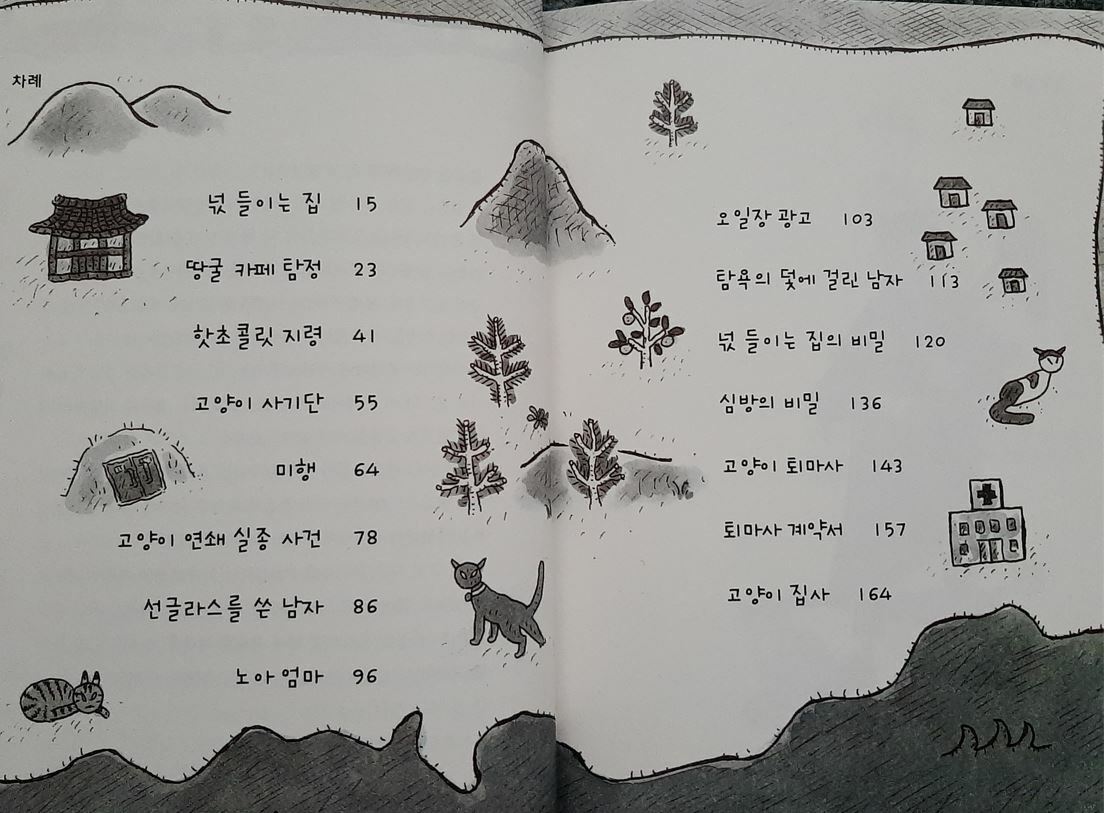 차례
넋 들이는 집 15
땅굴 카페 탐정 23
핫초콜릿 지령 41
고양이 사기단 55
미행 64
고양이 연쇄 실종 사건 78
선글라스를 쓴 남자 86
노아 엄마 96
오일장 광고 103
탐욕의 덫에 걸린 남자 113
넋 들이는 집의 비밀 120
심방의 비밀 136
고양이 퇴마사 143
퇴마사 계약서 157
고양이 집사 164